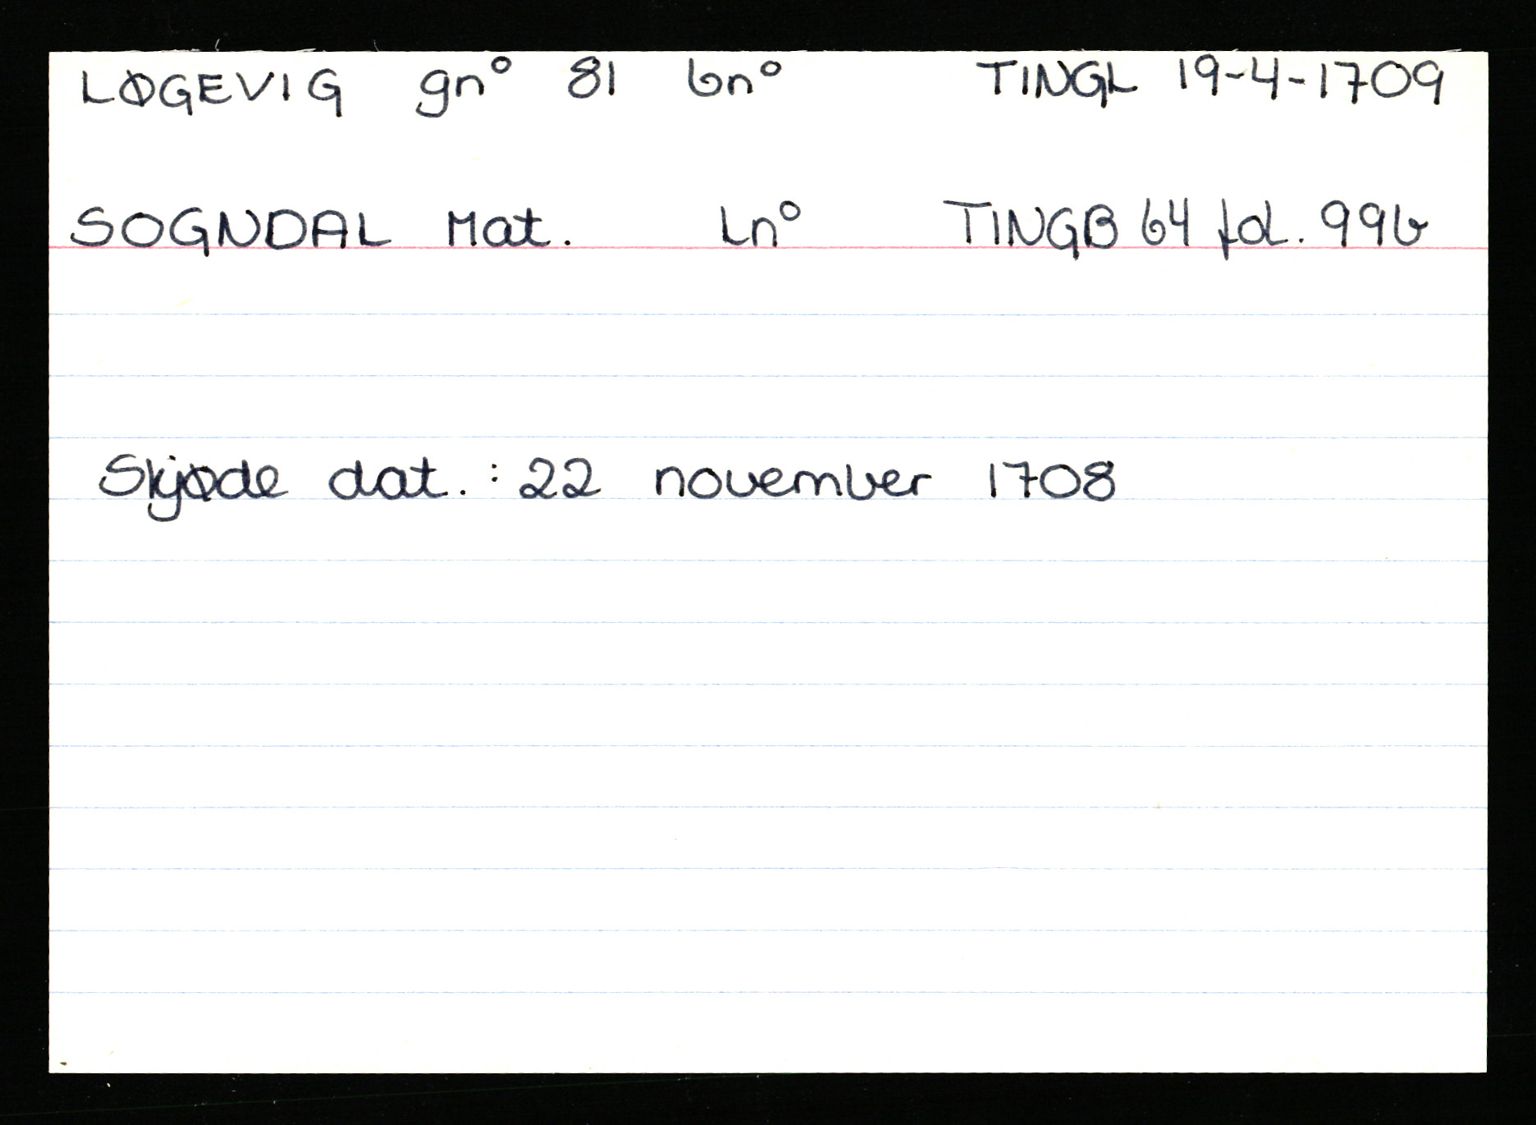 LØGEVIG gn° 81 bn° TINGL 19-4-1709
SOGNDAL Mat. Ln° TINGB 64 fol. 99b
Skjøde dat.: 22 november 1708